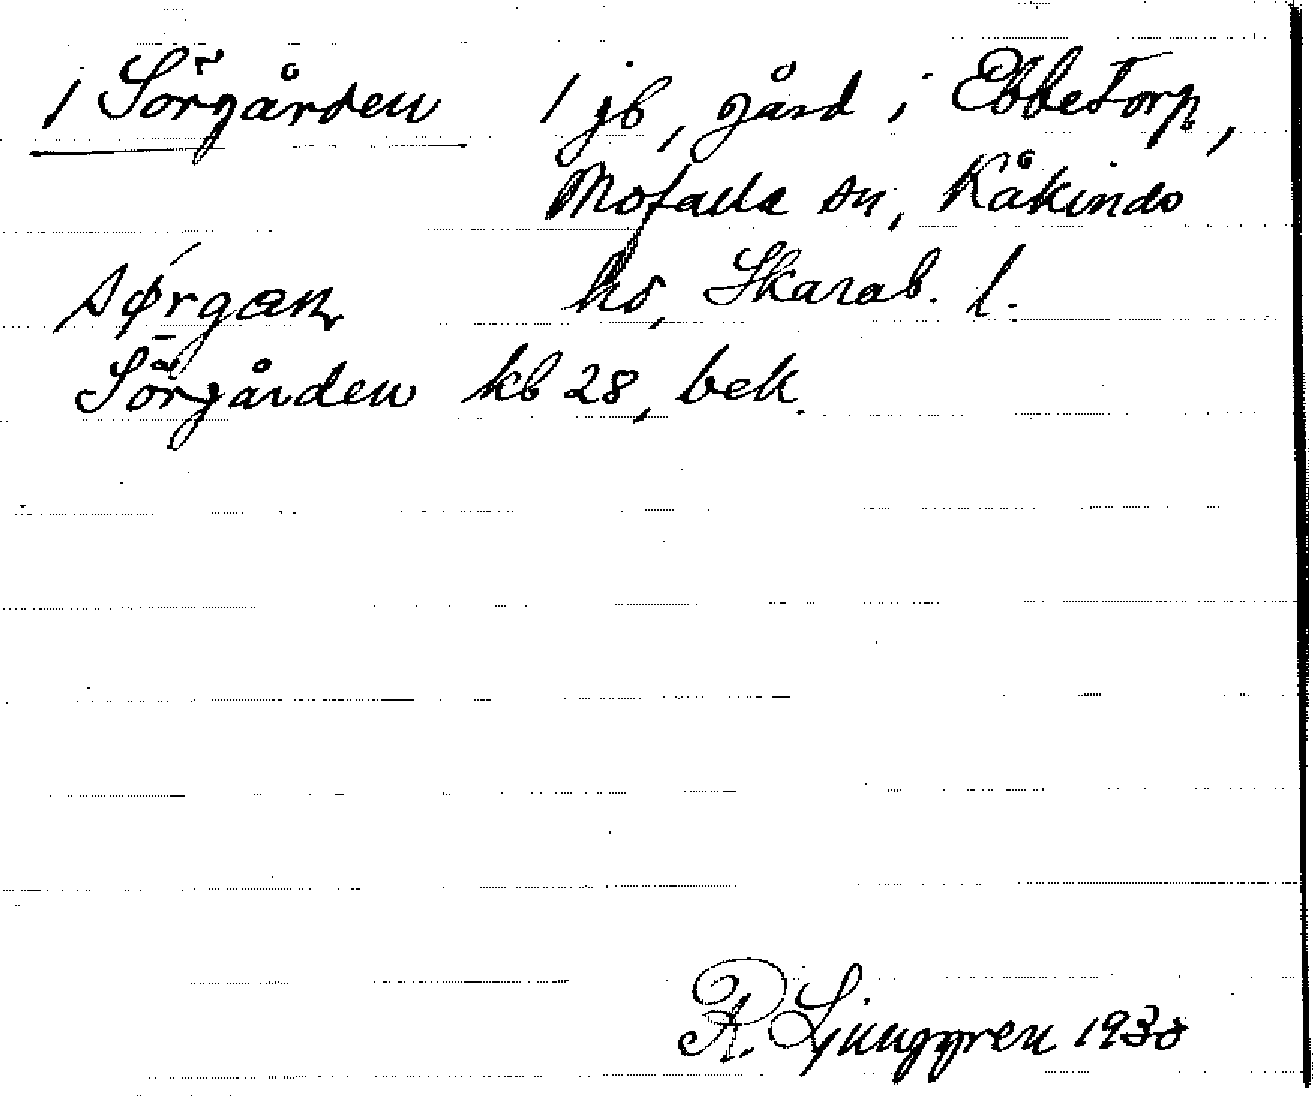 1 Sörgården 1 jb, gård i Ebbetorp,
Mofalla sn, Kåkinds
sørgan hd, Skarab. l.
Sörgården kb 28, bek.
R. Ljunggren 1938